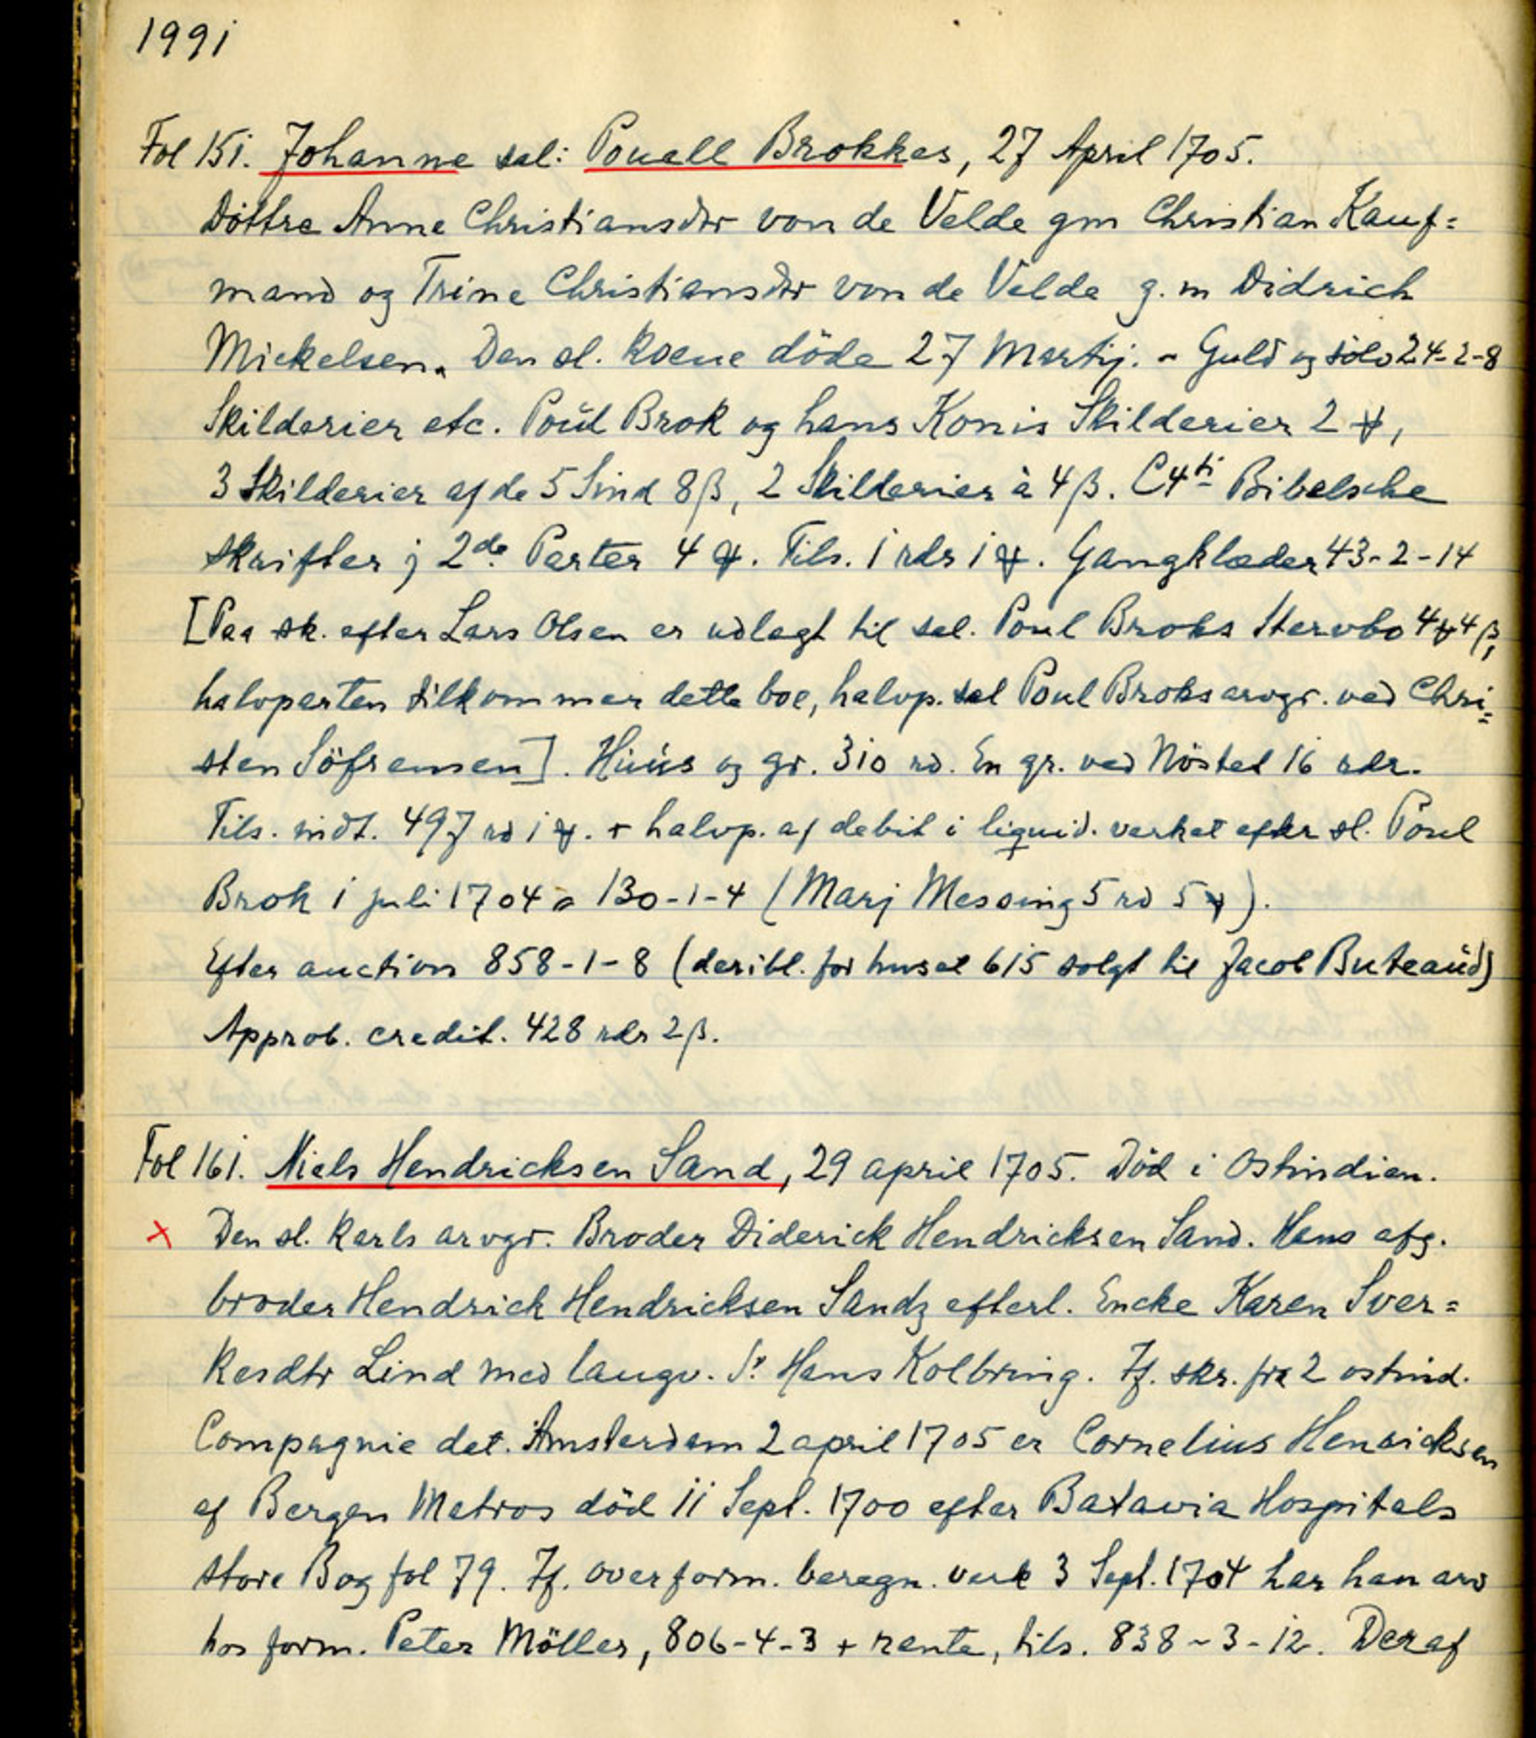 1991
Fol 151. Johanne sal: Pouell Brokkes, 27 April 1705.
Döttre Anne Christiansdtr von de Velde gm Christian Kauf=
mand og Trine Christiansdtr von de Velde g. m Didrich
Mickelsen. Den sl. koene döde 27 Martij. - Guld og sölv 24-2-8
Skilderier etc. Poŭl Brok og hans Konis Skilderier 2 ₰,
3 Skilderier af de 5 Sind 8β, 2 Skilderier à 4β. C4ti Bibelsche
skrifter j 2de Parter 4 ₰. Tils. 1 rdr 1 ₰. Gangklæder 43-2-14
[Paa sk. efter Lars Olsen er udlagt til sal. Poul Broks Stervbo 4 ₰ 4 β,
halvparten tilkommer dette boe, halvp. sal Poul Broks arvgr. ved Chri=
sten Söfrensen]. Huus og gr. 310 rd. En gr. ved Nöstet 16 rdr.
Tils. indt. 497 rd 1 ₰. + halvp. af debit i liquid. verket efter sl. Poul
Brok 1 juli 1704 = 130-1-4 (Marj Messing 5 rd 5 ₰).
Efter auction 858-1-8 (deribl. for huset 615 solgt til Jacob Buteaŭd)
Approb. credit. 428 rdr 2β.
Fol 161. Niels Hendricksen Sand, 29 april 1705. Död i Ostindien.
x Den sl. karls arvgr. Broder Diderick Hendricksen Sand. Hans afg.
broder Hendrich Hendricksen Sandz efterl. Encke Karen Sver=
kesdtr Lind med laugv. Sr Hans Kolbring. Jf. skr. fra 2 ostind.
Compagnie det. Amsterdam 2 april 1705 er Cornelius Henricksen
af Bergen Matros död 11 Sept. 1700 efter Batavia Hospitals
store Bog fol 79. Jf. overform. beregn. verk 3 Sept. 1704 har han arv
hos form. Peter Möller, 806-4-3 + rente, tils. 838-3-12. Deraf